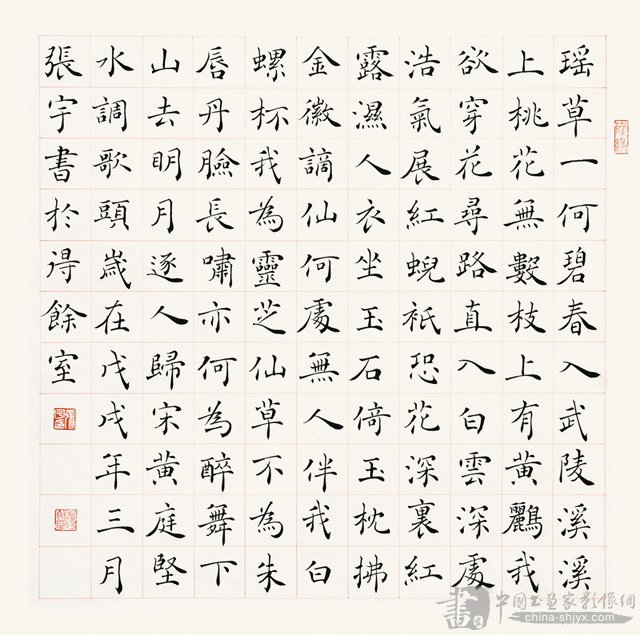 瑶草一何碧春入武陵溪溪
上桃花無數枝上有黄鸝我
欲穿花尋路直入白雲深處
浩氣展紅蜺祇恐花深裏紅
露濕人衣坐玉石倚玉枕拂
金徽謫仙何處無人伴我白
螺杯我為靈芝仙草不為朱
唇丹臉長嘯亦何為醉舞下
山去明月逐人歸宋黄庭堅
水調歌頭歲在戊戌年三月
張宇書於得餘室
書
中國书画家影像網
china-shjyx.com